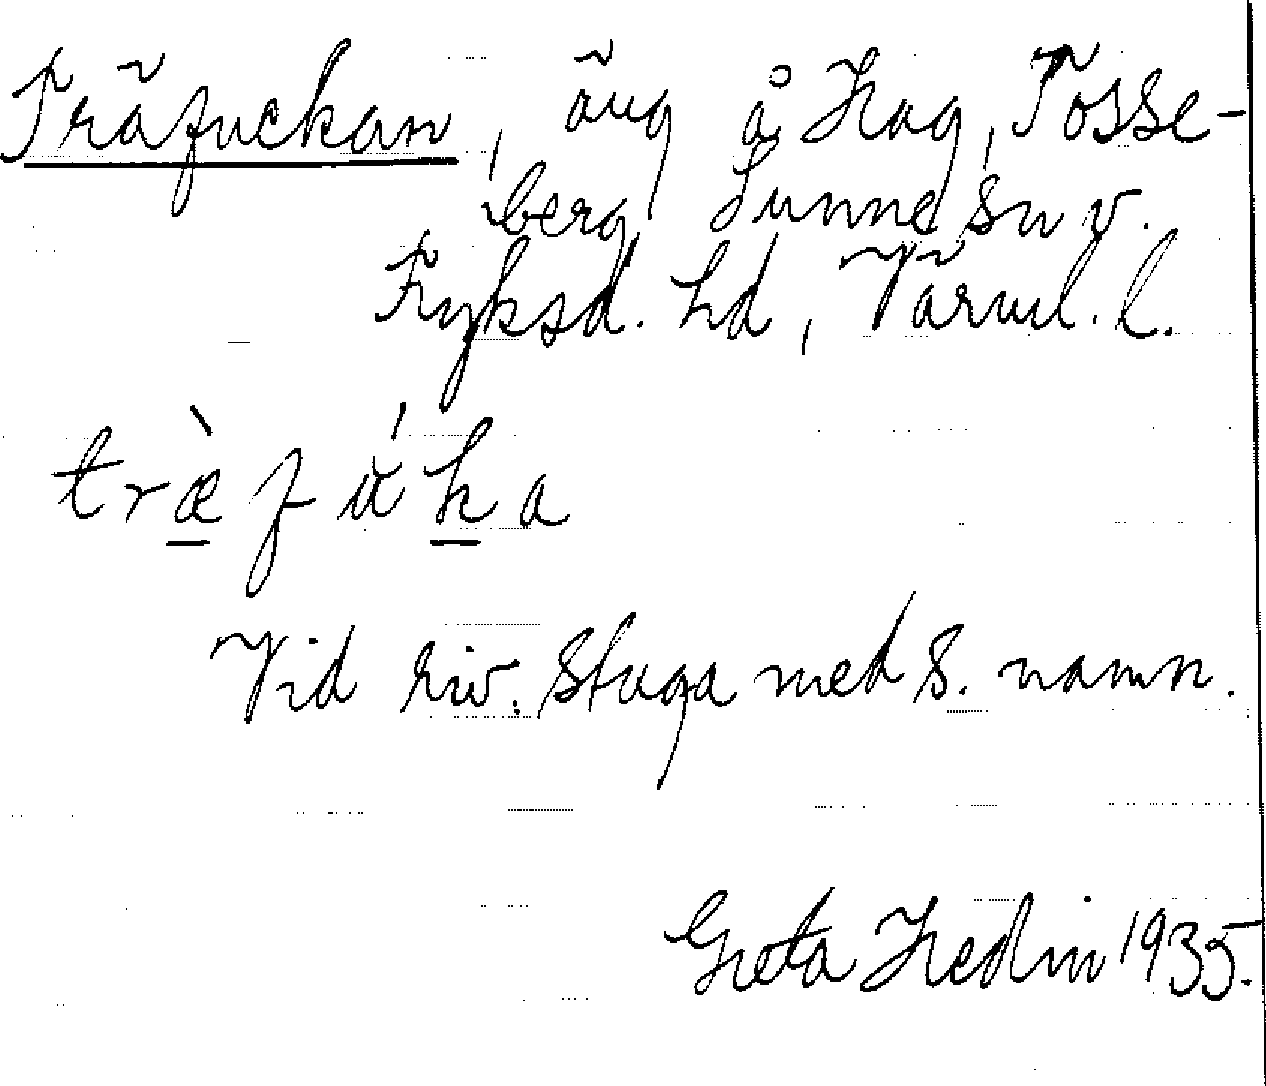 Träfuckan, äng å Hag, Tösse-
berg, Sunne sn v.
Fryksd. hd, Värml. l.
træ̀fúka
Vid riv. stuga med s. namn.
Greta Hedin 1935.